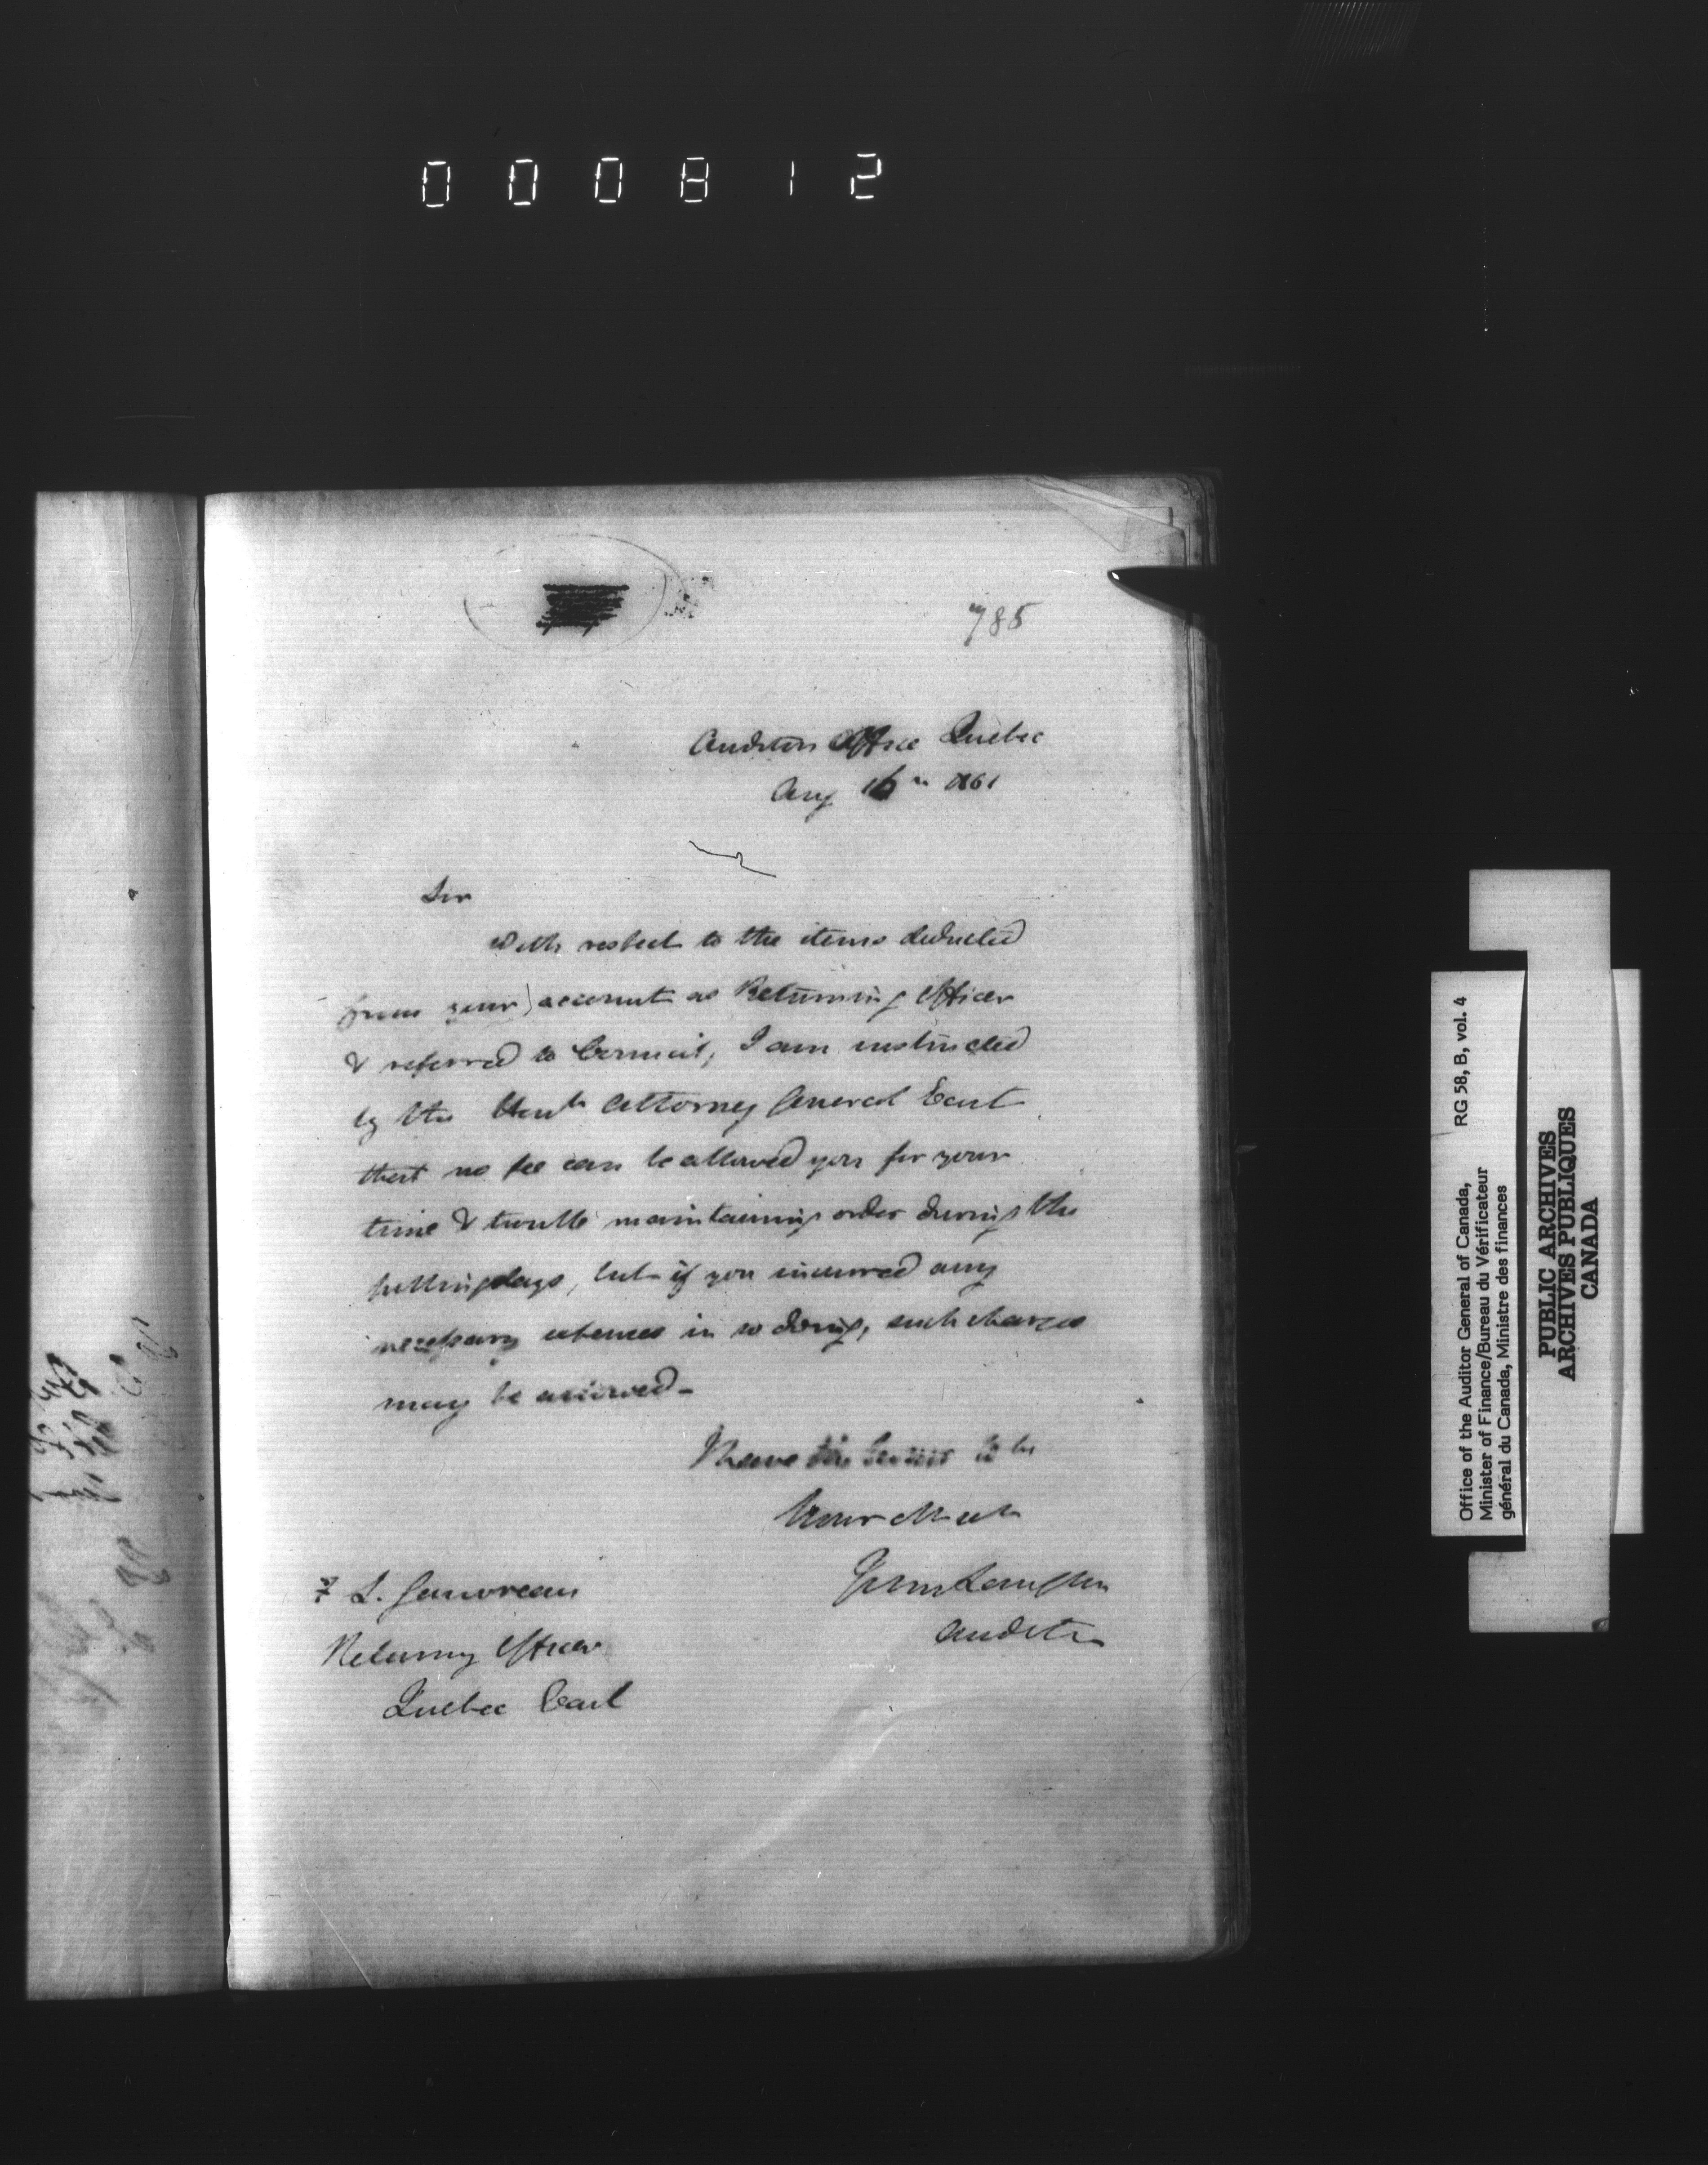 000812
785
Auditors Office Quebec
Aug 16th 1861
Sir
With respect to the items deducted
from your account as Returning Officer
& referred to Council, I am instructed
by the Honble Attorney General East
that no fee can be allowed you for your
time & trouble maintaining order during the
polling days, but if you incurred any
necessary expenses in so doing, such charges
may be allowed -
I have the honor to be
Your Obt
John Langton
Auditor
L. Gauvreau
Returning Officer
Quebec East
Office of the Auditor General of Canada, RG 58, B, vol. 4
Minister of Finance/Bureau du Vérificateur
général du Canada, Ministre des finances
PUBLIC ARCHIVES
ARCHIVES PUBLIQUES
CANADA